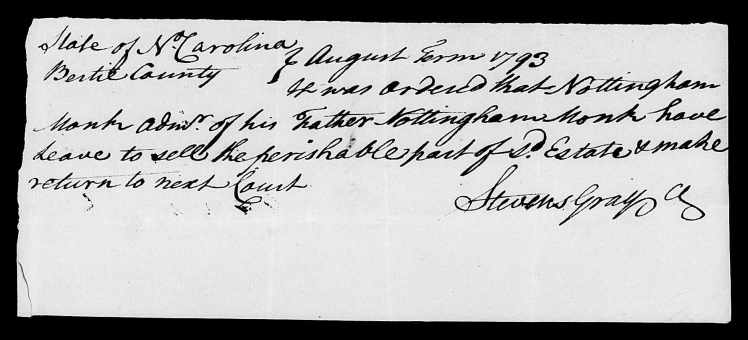 State of No. Carolina
Bertie County } August Term 1793
It was ordered that Nottingham
Monk Admr. of his Father Nottingham Monk have
Leave to sell the perishable part of sd. Estate & make
return to next Court
Stevens Gray CC